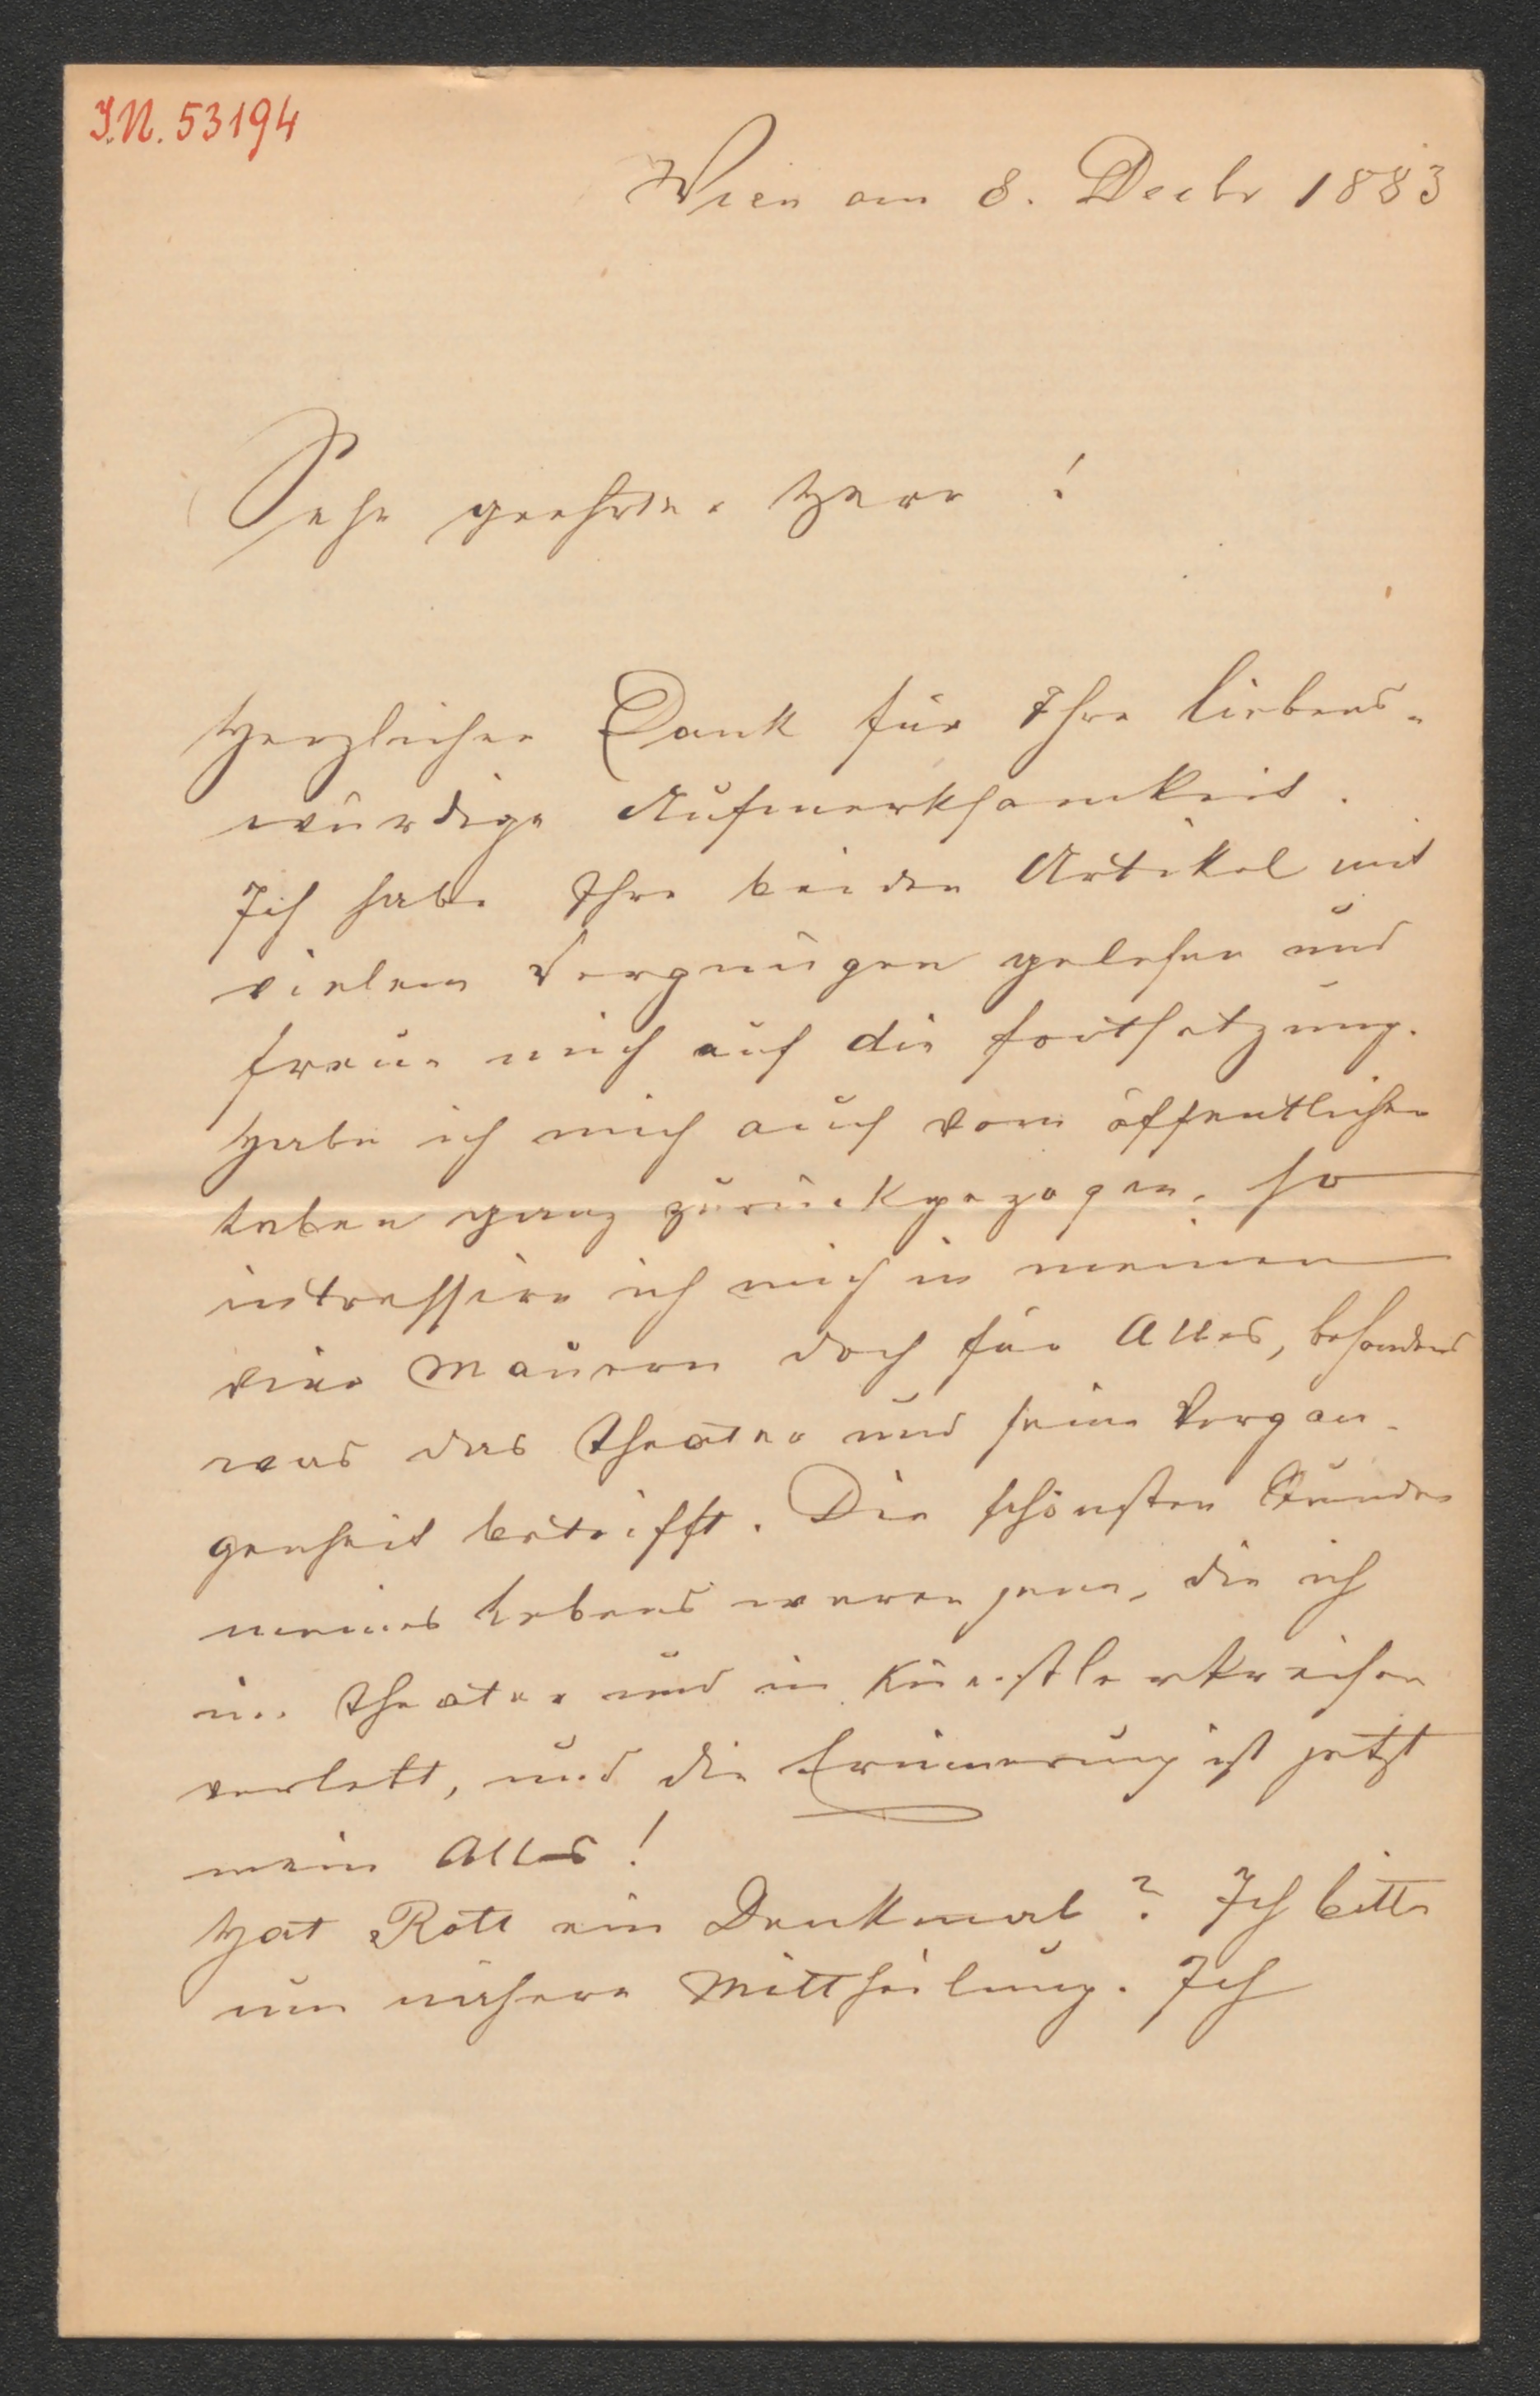 I.N. 53194
Wien am 8. Decbr 1883
Sehr geehrter Herr !
Herzlichen Dank für Ihre liebens-
würdige Aufmerksamkeit.
Ich habe Ihre beiden Artikel mit
vielem Vergnügen gelesen und
freue mich auf die Fortsetzung.
Habe ich mich auch vom öffentlichen
Leben ganz zurückgezogen, so
intressire ich mich in meinen
vier Mauern doch für Alles, besonders
was das Theater und seine Vergan-
genheit betrifft. Die schönsten Stunden
meines Lebens waren jene, die ich
im Theater und in Künstlerkreisen
verlebt, und die Erinnerung ist jetzt
mein Alles !
Hat Rott ein Denkmal ? Ich bitte
um nähere Mittheilung. Ich